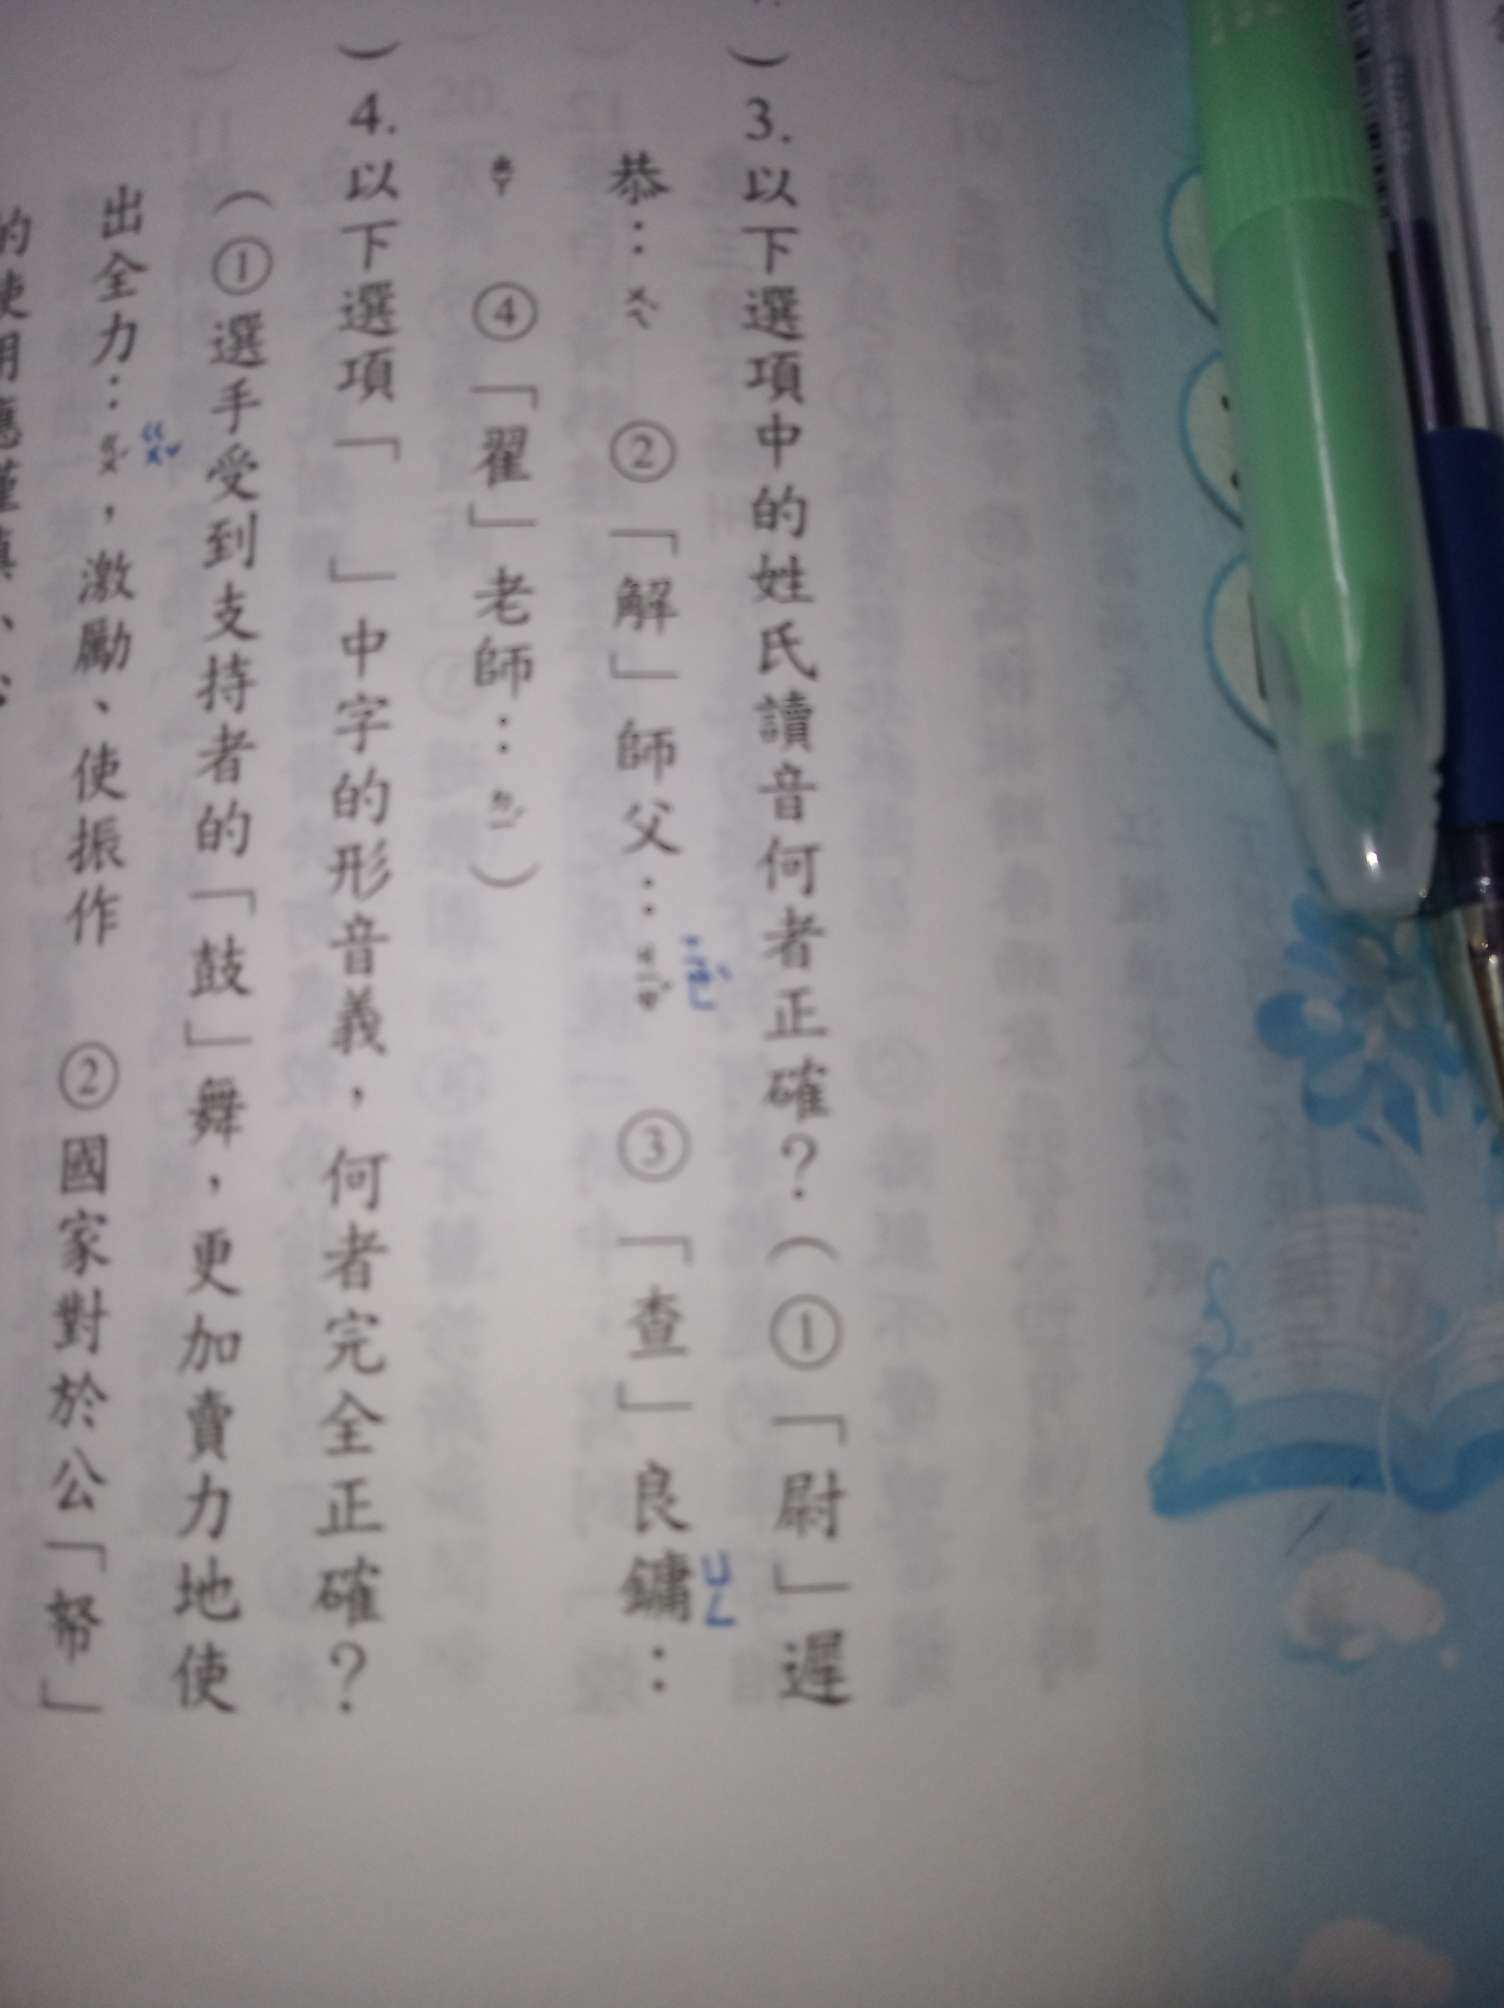 )3.以下選項中的姓氏讀音何者正確？（①「尉」遲
恭：ㄨㄟˋ ②「解」師父： ③「查」良鏞：
ㄓㄚ ④「翟」老師：ㄉㄧˊ）
)4.以下選項「 」中字的形音義，何者完全正確？
（①選手受到支持者的「鼓」舞，更加賣力地使
出全力：ㄍㄨˇ，激勵、使振作 ②國家對於公「帑」
的使用應謹慎、
ㄩㄥ
ㄍㄨˇ